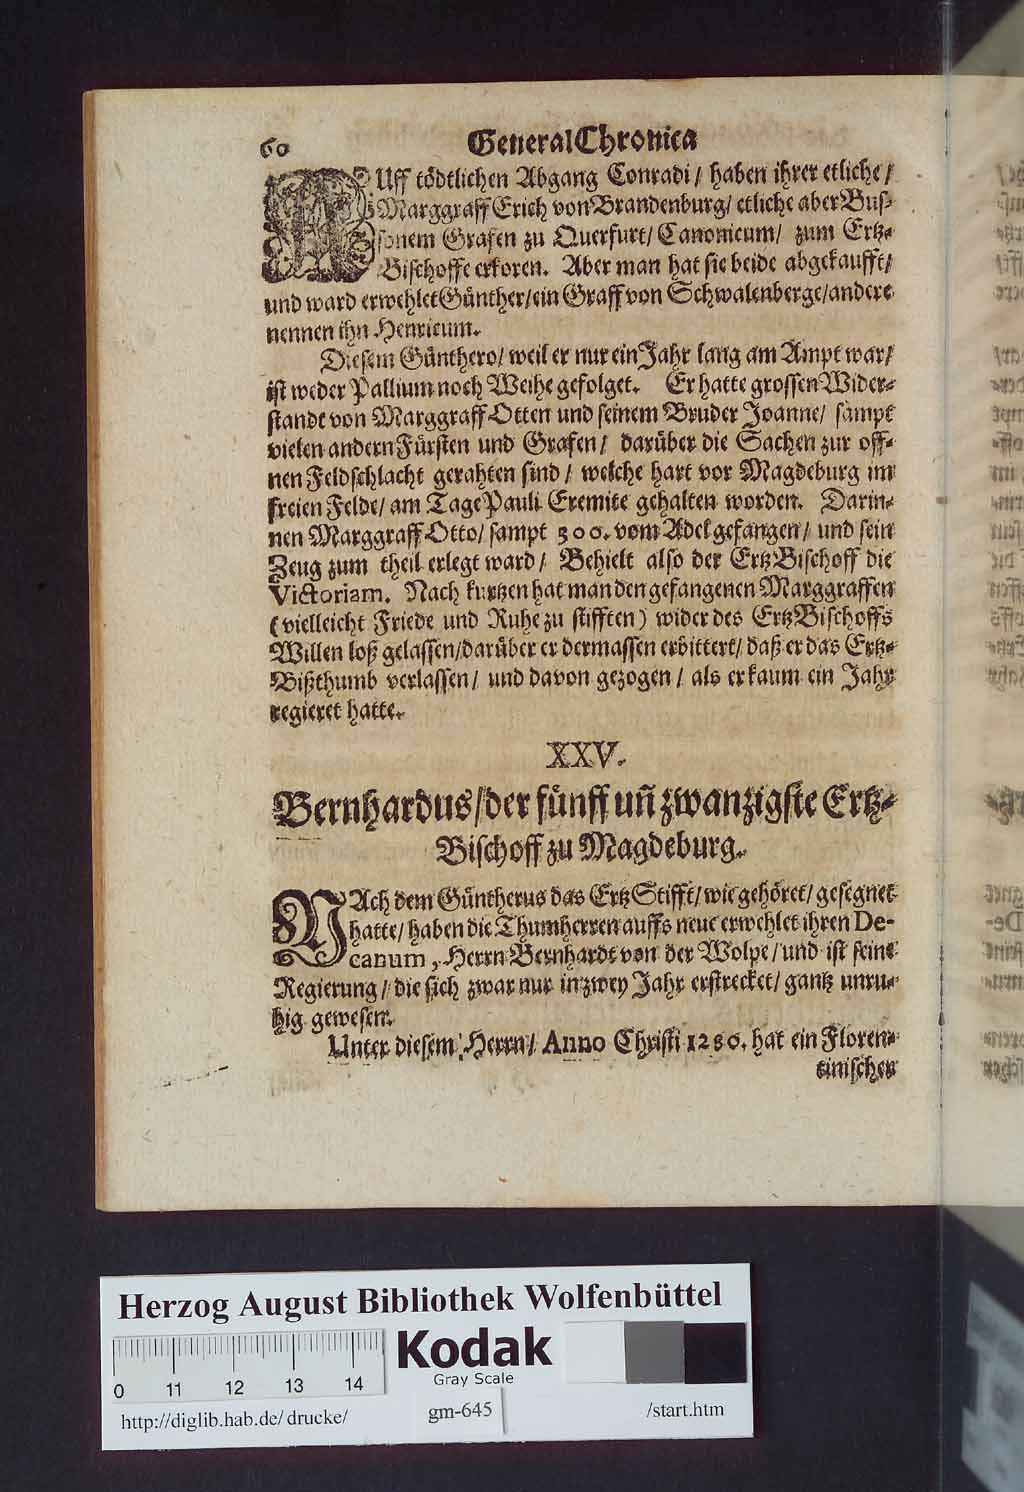 60 General Chronica
AUff tödtlichen Abgang Conradi / haben ihrer etliche /
Marggraff Erich von Brandenburg / etliche aber Bus-
sonem Grafen zu Querfurt / Canonicum / zum Ertz-
Bischoffe erkoren. Aber man hat sie beide abgekaufft /
und ward erwehlet Günther / ein Graff von Schwalenberge / andere
nennen ihn Henricum.
Diesem Günthero / weil er nur ein Jahr lang am Ampt war /
ist weder Pallium noch Weihe gefolget. Er hatte grossen Wider-
stande von Marggraff Otten und seinem Bruder Joanne / sampt
vielen andern Fürsten und Grafen / darüber die Sachen zur off-
nen Feldschlacht gerahten sind / welche hart vor Magdeburg im
freien Felde / am Tage Pauli Eremite gehalten worden. Darin-
nen Marggraff Otto / sampt 300. vom Adel gefangen / und sein
Zeug zum theil erlegt ward / Behielt also der ErtzBischoff die
Victoriam. Nach kurtzen hat man den gefangenen Marggraffen
(vielleicht Friede und Ruhe zu stifften) wider des ErtzBischoffs
Willen loß gelassen / darüber er dermassen erbittert / daß er das Ertz-
Bißthumb verlassen / und davon gezogen / als er kaum ein Jahr
regieret hatte.
XXV.
Bernhardus / der fünff uñ zwanzigste Ertz-
Bischoff zu Magdeburg.
NAch dem Güntherus das ErtzStifft / wie gehöret / gesegnet
hatte / haben die Thumherren auffs neue erwehlet ihren De-
canum, Herrn Bernhardt von der Wolpe / und ist seine
Regierung / die sich zwar nur in zwey Jahr erstrecket / gantz unru-
hig gewesen.
Unter diesem Herrn / Anno Christi 1280. hat ein Floren-
tinischer
Herzog August Bibliothek Wolfenbüttel
Kodak
Gray Scale
0 11 12 13 14
http://diglib.hab.de/ drucke/ gm-645 /start.htm